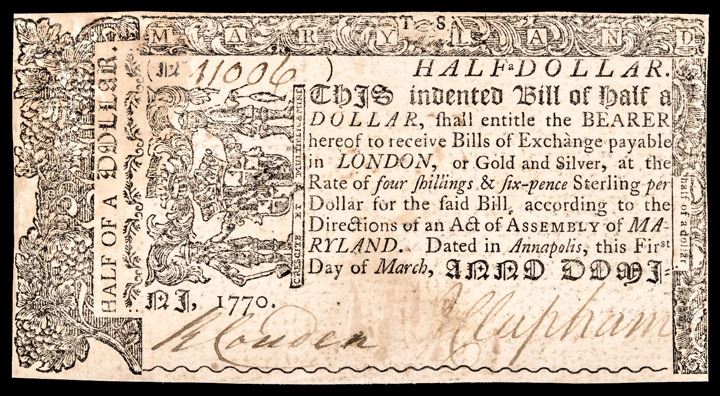 T S
MARYLAND
HALF OF A DOLLAR.
(No 11006)
HALF a DOLLAR.
THIS indented Bill of Half a
DOLLAR, ſhall entitle the BEARER
hereof to receive Bills of Exchànge payable
in LONDON, or Gold and Silver, at the
Rate of four ſhillings & ſix-pence Sterling per
Dollar for the ſaid Bill, according to the
Directions of an Act of ASSEMBLY of MA-
RYLAND. Dated in Annapolis, this Firſt
Day of March, ANNO DOMI-
NI, 1770.
CRESCITE ET MULTIPLICAMINI
half of a dollar.
R Couden
J Clapham